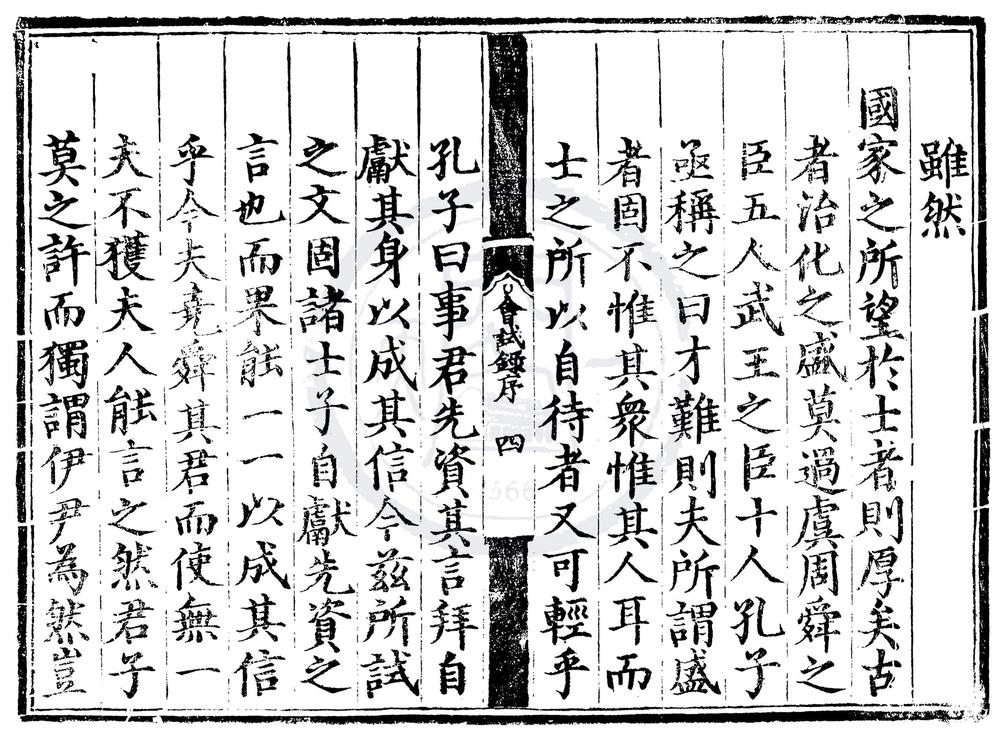 雖然
國家之所望於士者則厚矣古
者治化之盛莫過虞周舜之
臣五人武王之臣十人孔子
亟稱之曰才難則夫所謂盛
者固不惟其衆惟其人耳而
士之所以自待者又可輕乎
會試錄序
四
孔子曰事君先資其言拜自
獻其身以成其信今茲所試
之文固諸士子自獻先資之
言也而果能一一以成其信
乎今夫堯舜其君而使無一
夫不獲夫人能言之然君子
莫之許而獨謂伊尹為然豈